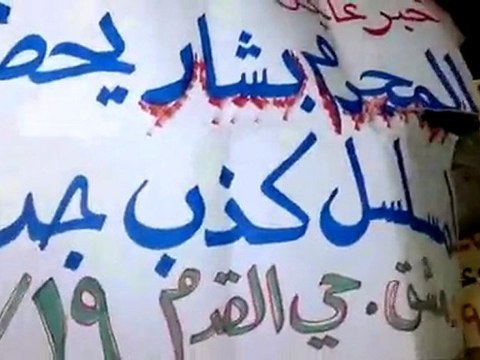 خبر عاجل
المجرم بشار يحض
مسلسل كذب جد
دمشق . حي القدم ١٩/